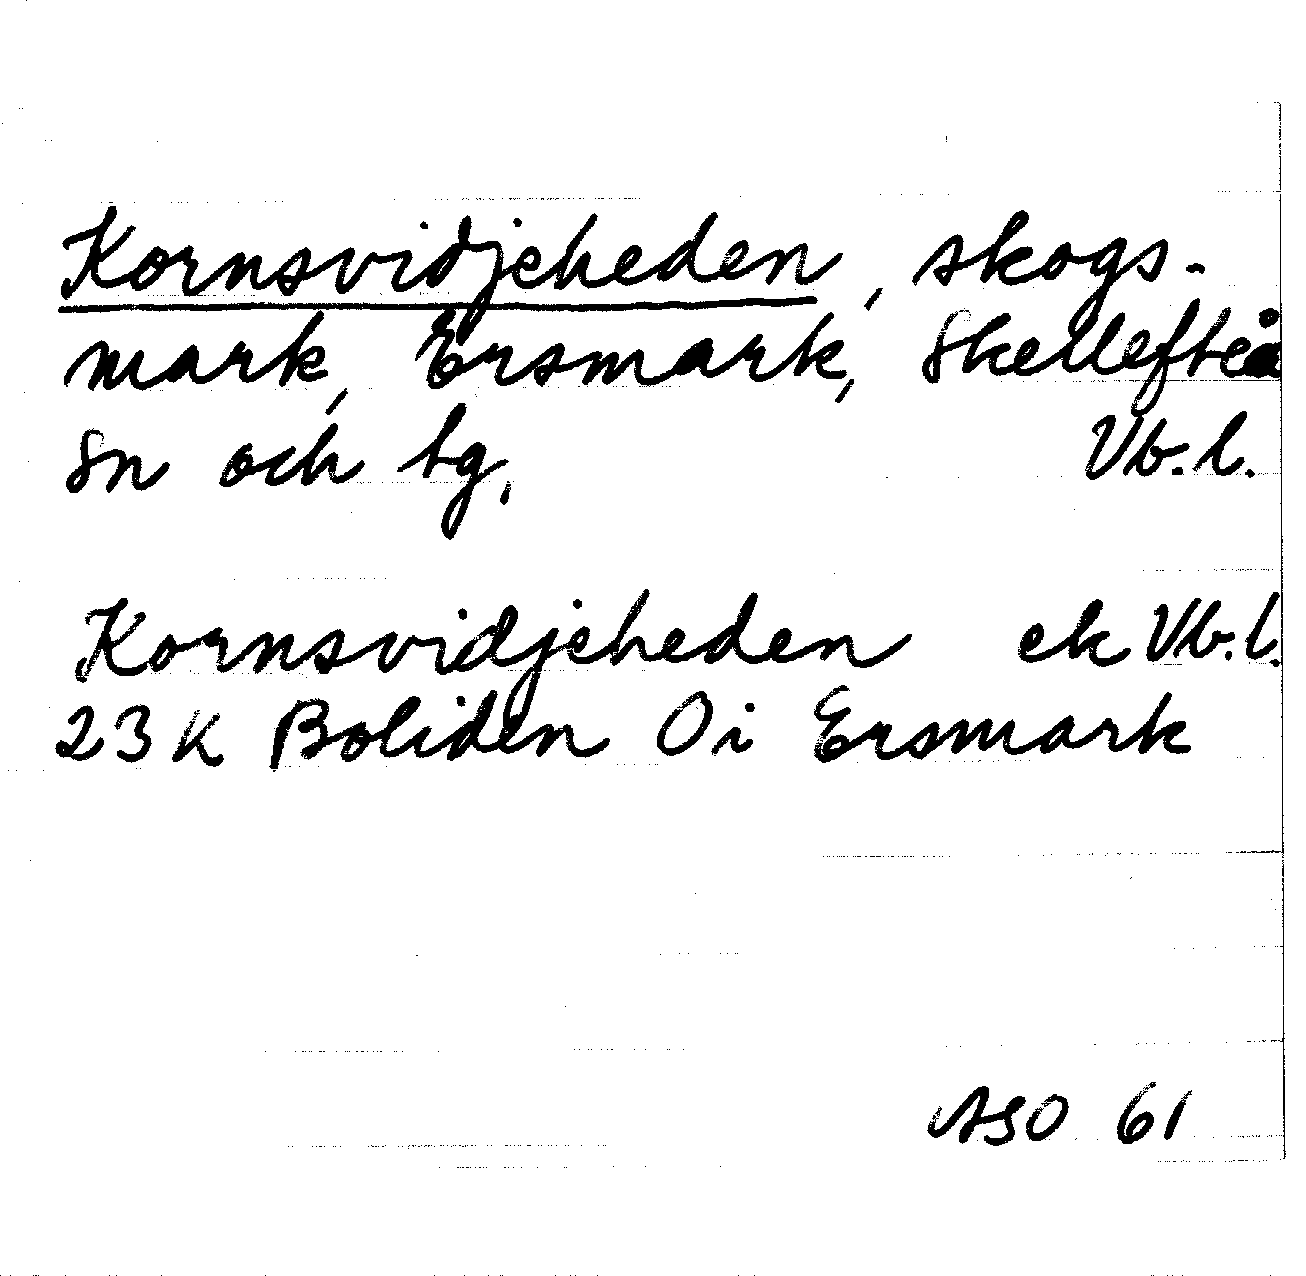 Kornsvidjeheden, skogs-
mark, Ersmark, Skellefteå
sn och tg. Vb.l.
Kornsvidjeheden ek Vb.l.
23 K Boliden Oi Ersmark
ASO 61